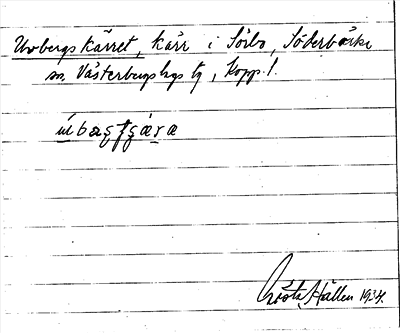 Urbergskärret, kärr i Sörbo, Söderbärke
sn, Västerbergslags tg, Kopp. l.
Gösta Hallen 1934.